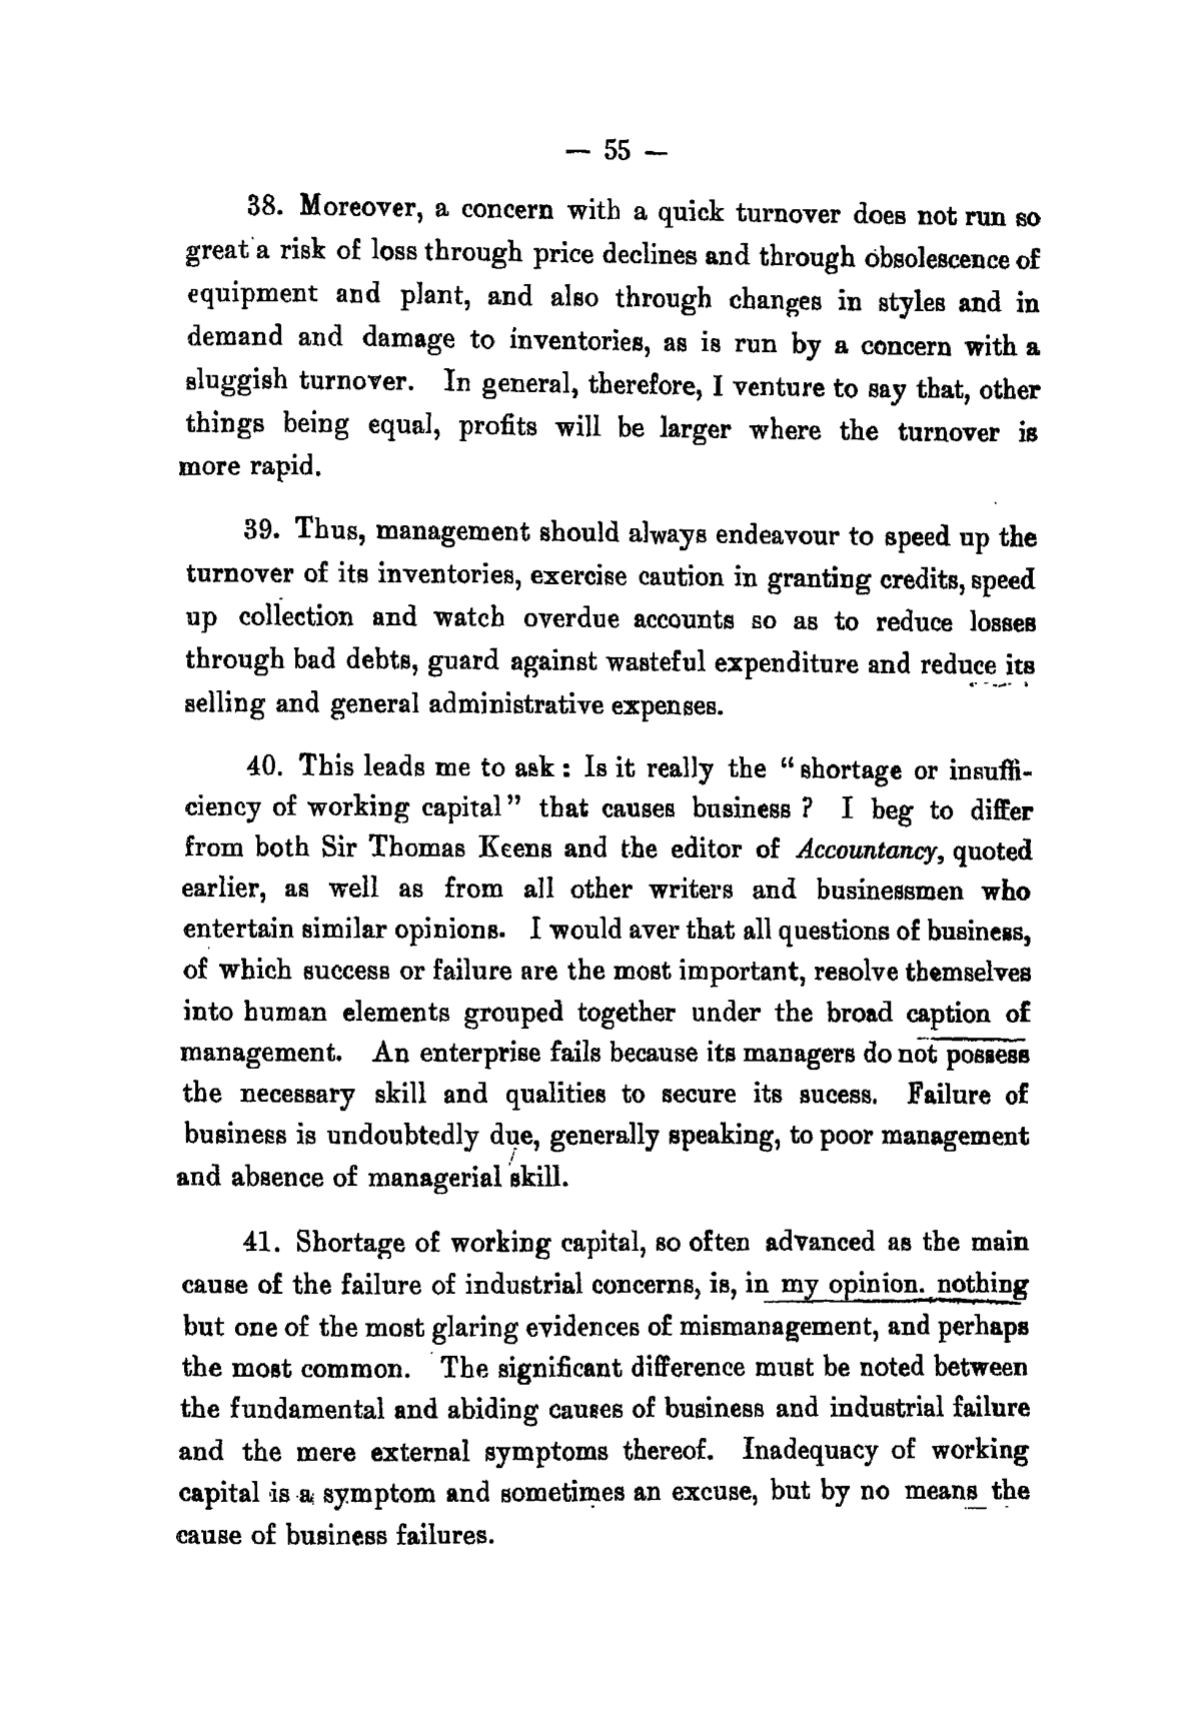 — 55 —
38. Moreover, a concern with a quick turnover does not run so
great a risk of loss through price declines and through obsolescence of
equipment and plant, and also through changes in styles and in
demand and damage to inventories, as is run by a concern with a
sluggish turnover. In general, therefore, I venture to say that, other
things being equal, profits will be larger where the turnover is
more rapid.
39. Thus, management should always endeavour to speed up the
turnover of its inventories, exercise caution in granting credits, speed
up collection and watch overdue accounts so as to reduce losses
through bad debts, guard against wasteful expenditure and reduce its
selling and general administrative expenses.
40. This leads me to ask : Is it really the “ shortage or insuffi-
ciency of working capital ” that causes business ? I beg to differ
from both Sir Thomas Keens and the editor of Accountancy, quoted
earlier, as well as from all other writers and businessmen who
entertain similar opinions. I would aver that all questions of business,
of which success or failure are the most important, resolve themselves
into human elements grouped together under the broad caption of
management. An enterprise fails because its managers do not possess
the necessary skill and qualities to secure its sucess. Failure of
business is undoubtedly due, generally speaking, to poor management
and absence of managerial skill.
41. Shortage of working capital, so often advanced as the main
cause of the failure of industrial concerns, is, in my opinion. nothing
but one of the most glaring evidences of mismanagement, and perhaps
the most common. The significant difference must be noted between
the fundamental and abiding causes of business and industrial failure
and the mere external symptoms thereof. Inadequacy of working
capital is a symptom and sometimes an excuse, but by no means the
cause of business failures.